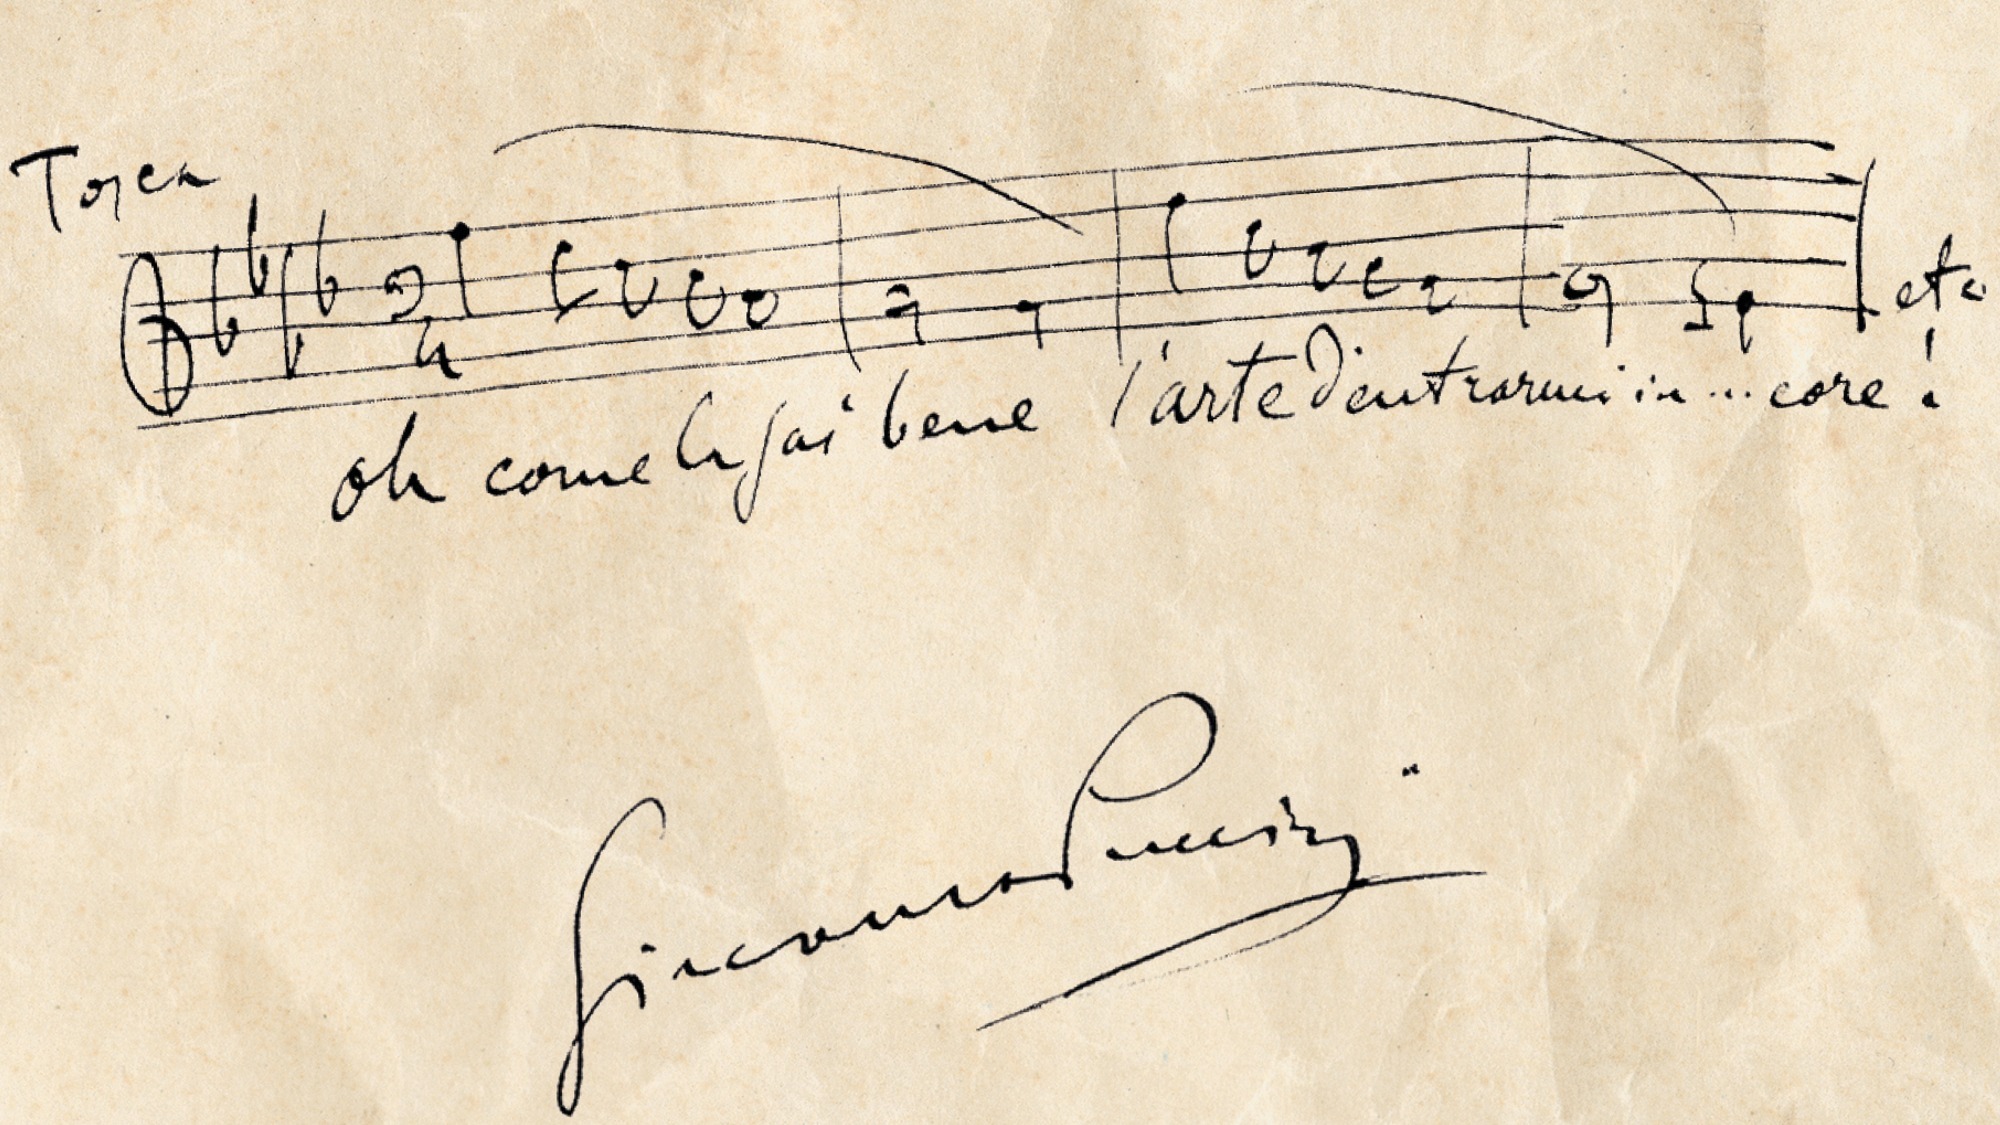 Tosca
3
4
etc
oh come la sai bene l'arte Dentrarmi in ... core!
Giacomo Puccini